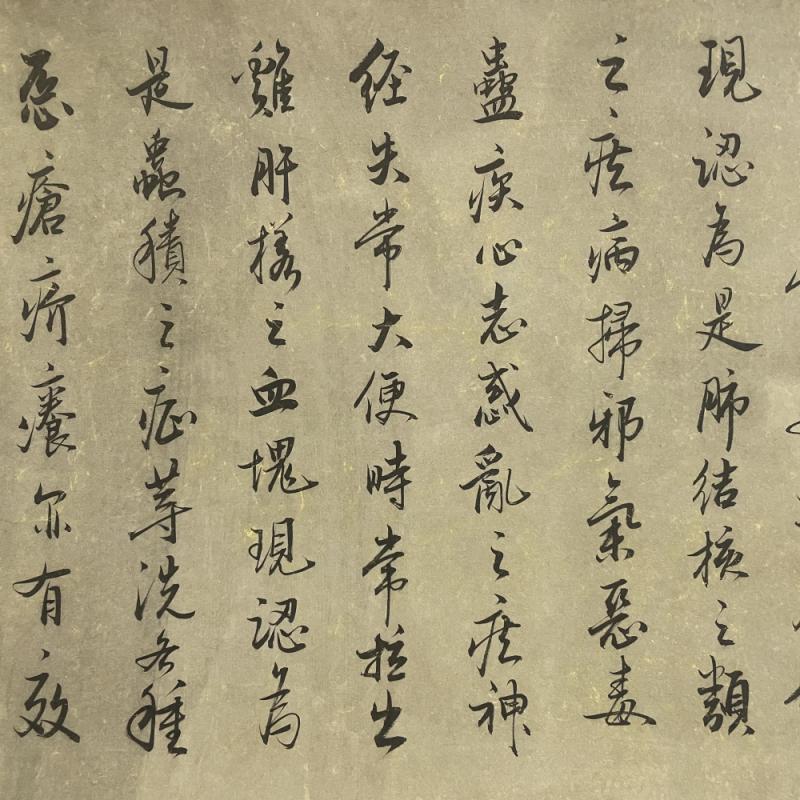 現認為是肺结核之類
之疾病掃邪氣惡毒
蠱疾心志惑亂之疾神
经失常大便時常拉出
雞肝樣之血塊現認為
是蟲積之症荨洗各種
恶瘡疥癢尔有效